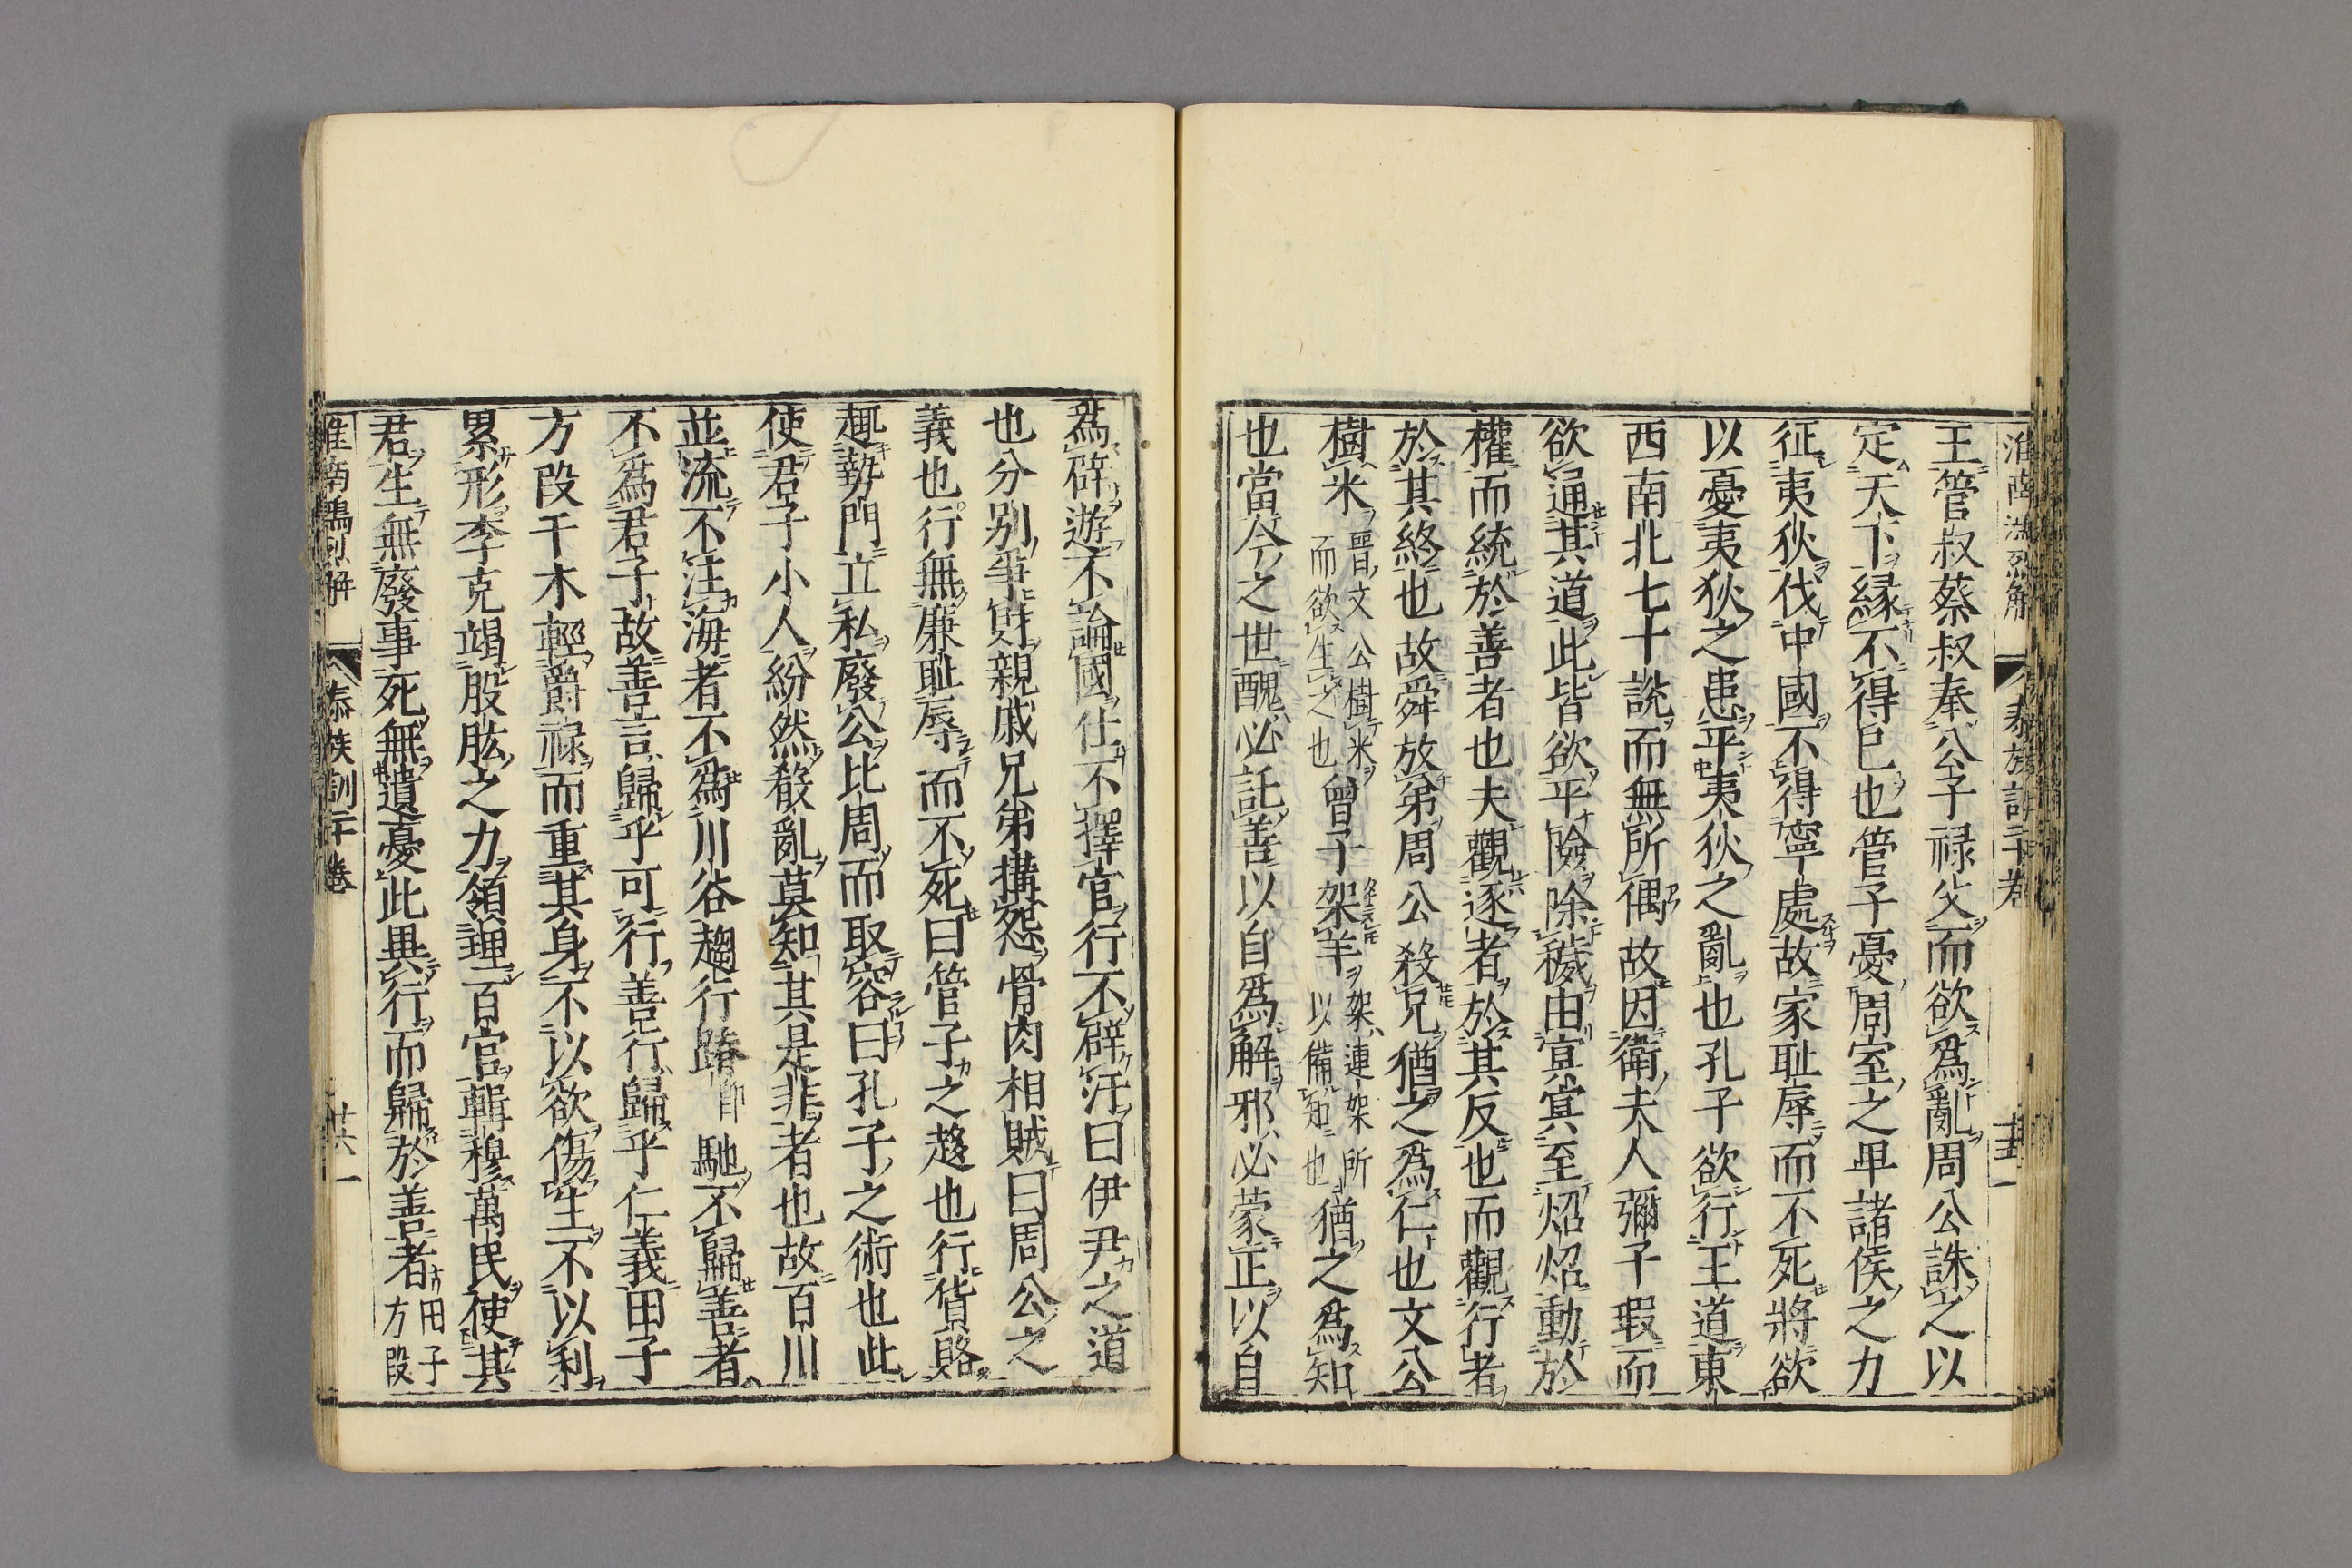 淮南鴻烈解 泰族訓二十卷
王管叔蔡叔奉公子祿父而欲爲亂周公誅之以
定天下緣不得巳也管子憂周室之卑諸侯之力
征夷狄伐中國不得寧處故家耻辱而不死將欲
以憂夷狄之患平夷狄之亂也孔子欲行王道東
西南北七十說而無所偶故因衛夫人彌子瑕而
欲通其道此皆欲平險除穢由冥冥至炤炤動於
權而統於善者也夫觀逐者於其反也而觀行者
於其終也故舜放弟周公殺兄猶之爲仁也文公
樹米晋文公樹米而欲生之也曾子架羊架連架所以備知也猶之爲知
也當今之世醜必託善以自爲解邪必蒙正以自
爲辟遊不論國仕不擇官行不辟汙曰伊尹之道
也分別爭財親戚兄弟搆怨骨肉相賊曰周公之
義也行無廉耻辱而不死曰管子之趍也行貨賂
趣勢門立私廢公比周而取容曰孔子之術也此
使君子小人紛然殽亂莫知其是非者也故百川
並流不注海者不爲川谷趨行踳馳不歸善者
不爲君子故善言歸乎可行善行歸乎仁義田子
方段干木輕爵祿而重其身不以欲傷生不以利
累形李克竭股肱之力領理百官輯穆萬民使其
君生無廢事死無遺憂此異行而歸於善者田子方段
淮南鴻烈解 泰族訓二十卷